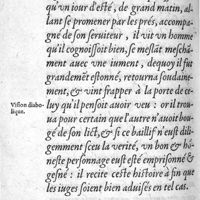 qu'vn iour d'esté, de grand matin, al-
lant se promener par les prés, accompa-
gné de son seruiteur, il vit vn homme
qu'il cognoissoit bien, se meslāt meschā-
ment auec vne iument, dequoy il fut
grandemēt estonné, retourna soudaine-
ment, & vint frapper à la porte de ce-
luy qu'il pensoit auoir veu : or il trou-
Vision diabo-
lique.
ua pour certain que l'autre n'auoit bou-
gé de son lict, & si ce baillif n'eust dili-
gemment sceu la verité, vn bon & hō-
neste personnage eust esté emprisonné &
gesné : il recite ceste histoire à fin que
les iuges soient bien aduisés en tel cas.